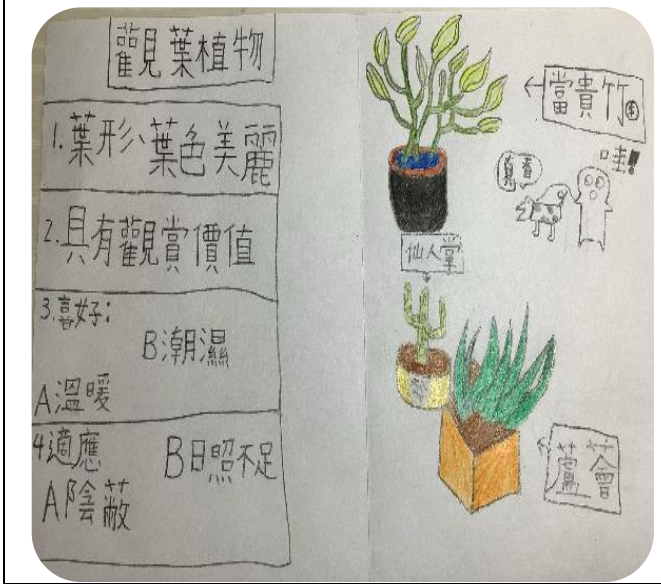 觀葉植物
1.葉形、葉色美麗
2.具有觀賞價值
3.喜好:
B潮濕
A溫暖
4適應
B日照不足
A陰蔽
當貴竹
哇!!
真香
仙人掌
蘆薈